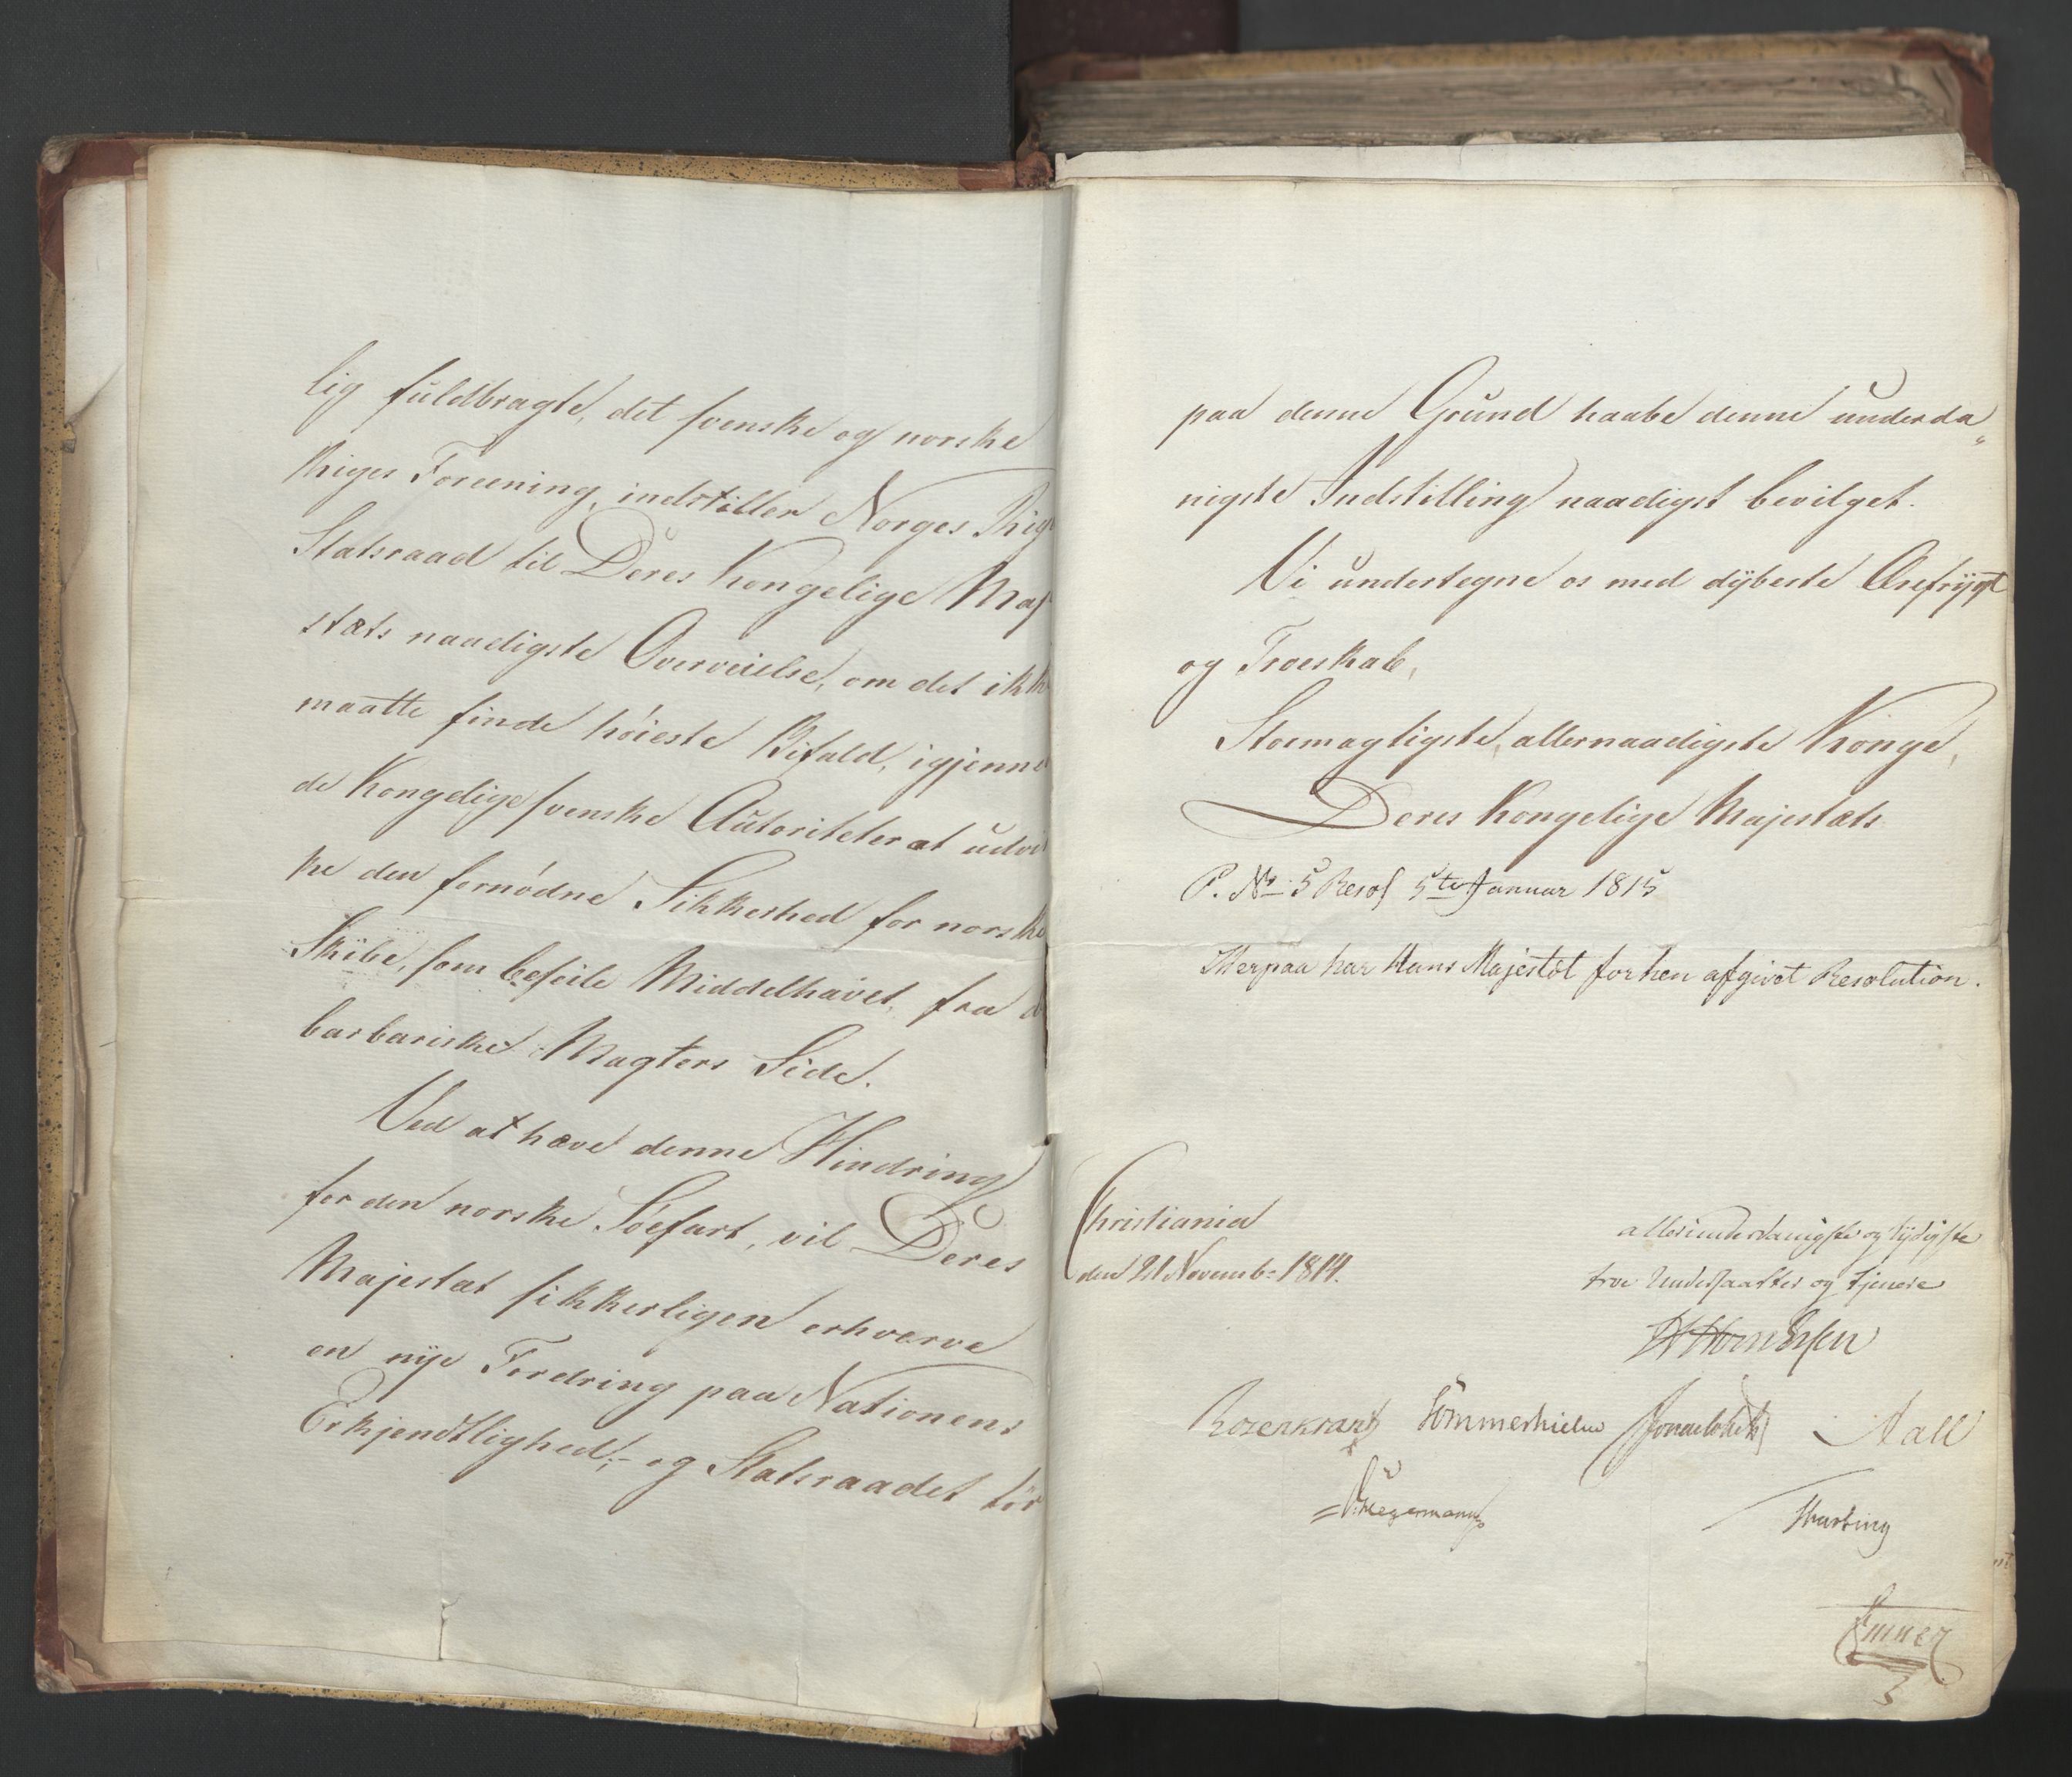 lig fuldbragte, det svenske og norske
Riges Foreening, indstiller Norges Rig
Statsraad til Deres Kongelige Maj
stæts naadigste Overveielse, om det ikk
maatte finde höieste Bifald, igjenne
de Kongelige svenske Autoriteter at udvir
ke den fornödne Sikkerhed for norske
Skibe, som beseile Middelhavet, fra d
barbariske Magters Side.
Ved at hæve denne Hindring
for den norske Söefart, vil Deres
Majestæt sikkerligen erhverve
en nye Fordring paa Nationens
Erkjendtlighed; og Statsraadet tör
paa denne Grund haabe denne underda„
nigste Indstilling naadigst bevilget.
Vi undertegne os med dybeste Ærefrygt
og Troeskab,
Stormægtigste, allernaadigste Konge,
Deres Kongelige Majestæts
P. No 5 Resol 5te Januar 1815
Herpaa har Hans Majestæt forhen afgivet Resolution.
Christiania
den 21 Novemb: 1814.
allerunderdanigste og lydigste
troe Undersaatter og tjenere
Rosenkrantz Sommerhielm Aall
Hegermann